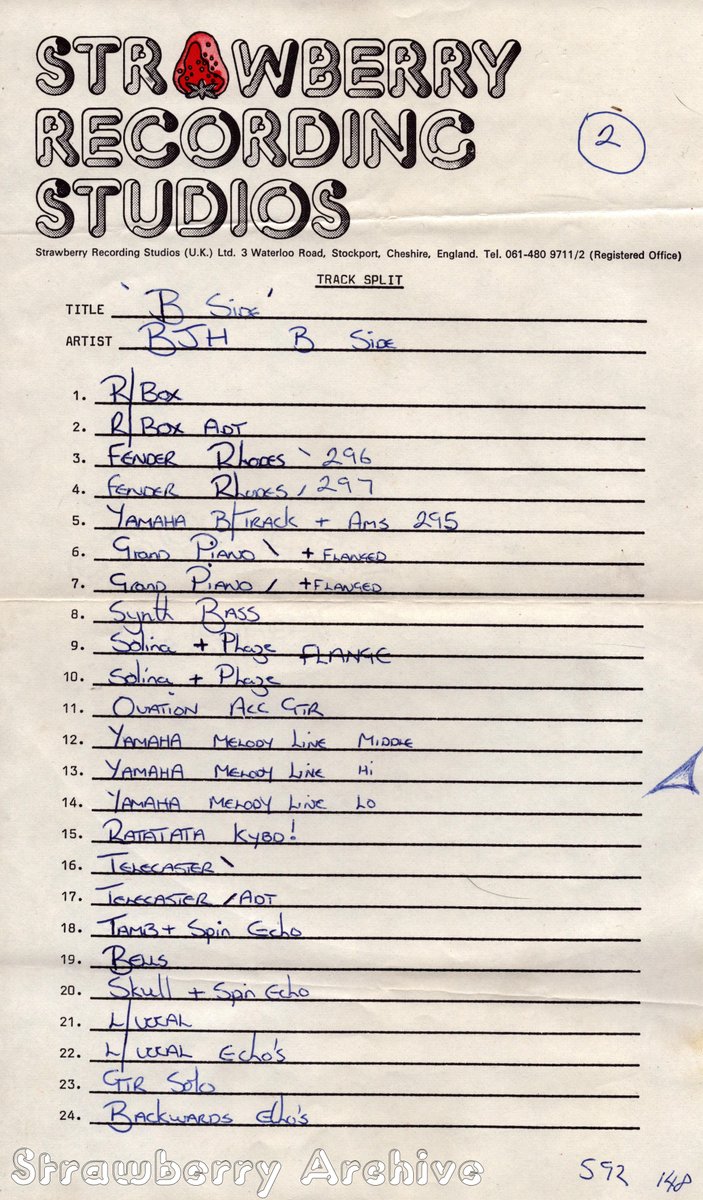 STRAWBERRY
RECORDING
STUDIOS
2
Strawberry Recording Studios (U.K.) Ltd. 3 Waterloo Road, Stockport, Cheshire, England. Tel. 061-480 9711/2 (Registered Office)
TRACK SPLIT
TITLE 'B SIDE'
ARTIST BJH B SIDE
1. R/BOX
2. R/BOX ADT
3. FENDER RHODES \ 296
4. FENDER RHODES / 297
5. YAMAHA B/TRACK + AMS 295
6. GRAND PIANO \ + FLANGED
7. GRAND PIANO / + FLANGED
8. Synth BASS
9. Solina + Phaze FLANGE
10. Solina + Phaze
11. OVATION ACC GTR
12. YAMAHA MELODY LINE MIDDLE
13. YAMAHA MELODY LINE Hi
14. YAMAHA MELODY LINE LO
15. RATATATA KYBD!
16. TELECASTER \
17. TELECASTER / ADT
18. TAMB + Spin Echo
19. BELLS
20. Skull + Spin Echo
21. L/VOCAL
22. L/VOCAL Echo's
23. GTR Solo
24. BACKWARDS Echo's
Strawberry Archive
592 148